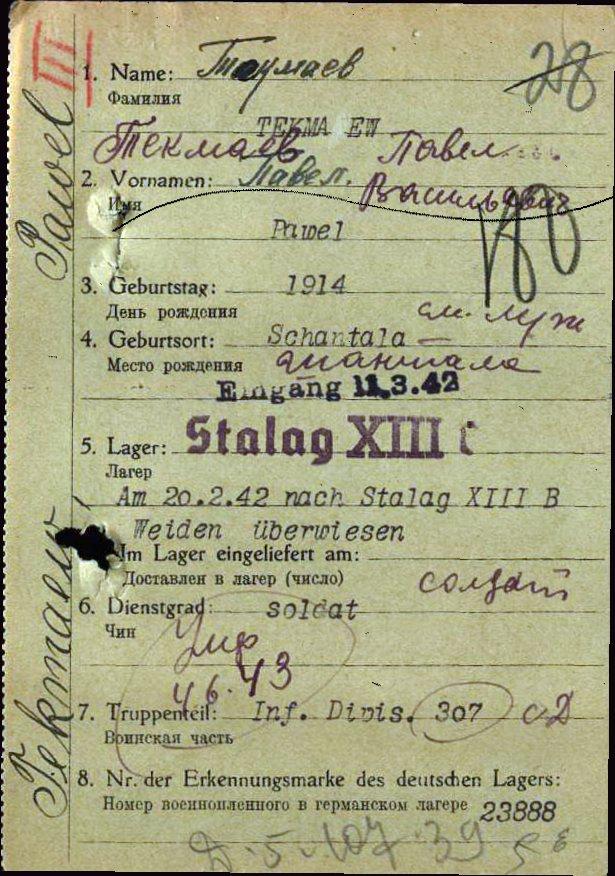 III
28
1. Name: Таумаев
Фамилия
TEKMA EW
Текмаев Павел
2. Vornamen: Павел. Васильевич
Имя
Pawel
180
3. Geburtstag: 1914
День рождения
4. Geburtsort: Schantala
Место рождения Шантала
Eingang 11.3.42
5. Lager: Stalag XIII C
Лагерь
Am 20.2.42 nach Stalag XIII B
Weiden überwiesen
Im Lager eingeliefert am:
Доставлен в лагерь (число)
солдат
6. Dienstgrad: soldat
Чин
Умер
4 6.43
7. Truppenteil: Inf. Divis. 307 сД
Воинская часть
8. Nr. der Erkennungsmarke des deutschen Lagers:
Номер военнопленного в германском лагере 23888
Tekmaew, Pawel